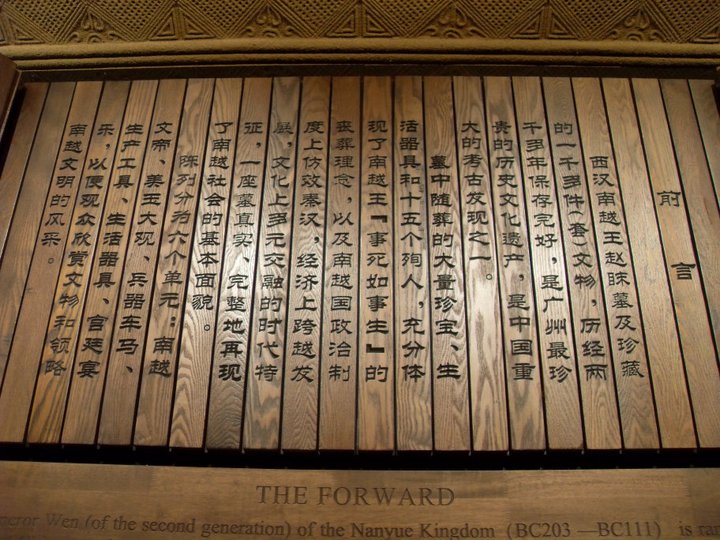 前言
西汉南越王赵眜墓及珍藏
的一千多件(套)文物，历经两
千多年保存完好，是广州最珍
贵的历史文化遗产，是中国重
大的考古发现之一。
墓中随葬的大量珍宝、生
活器具和十五个殉人，充分体
现了南越王『事死如事生』的
丧葬理念，以及南越国政治制
度上仿效秦汉，经济上跨越发
展，文化上多元交融的时代特
征，一座墓真实、完整地再现
了南越社会的基本面貌。
陈列分为六个单元：南越
文帝、美玉大观、兵器车马、
生产工具、生活器具、宫廷宴
乐，以便观众欣赏文物和领略
南越文明的风采。
THE FORWARD
peror Wen (of the second generation) of the Nanyue Kingdom (BC203 —BC111) is